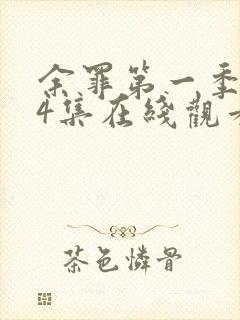 余罪第一季
4集在綫觀
茶色憐骨